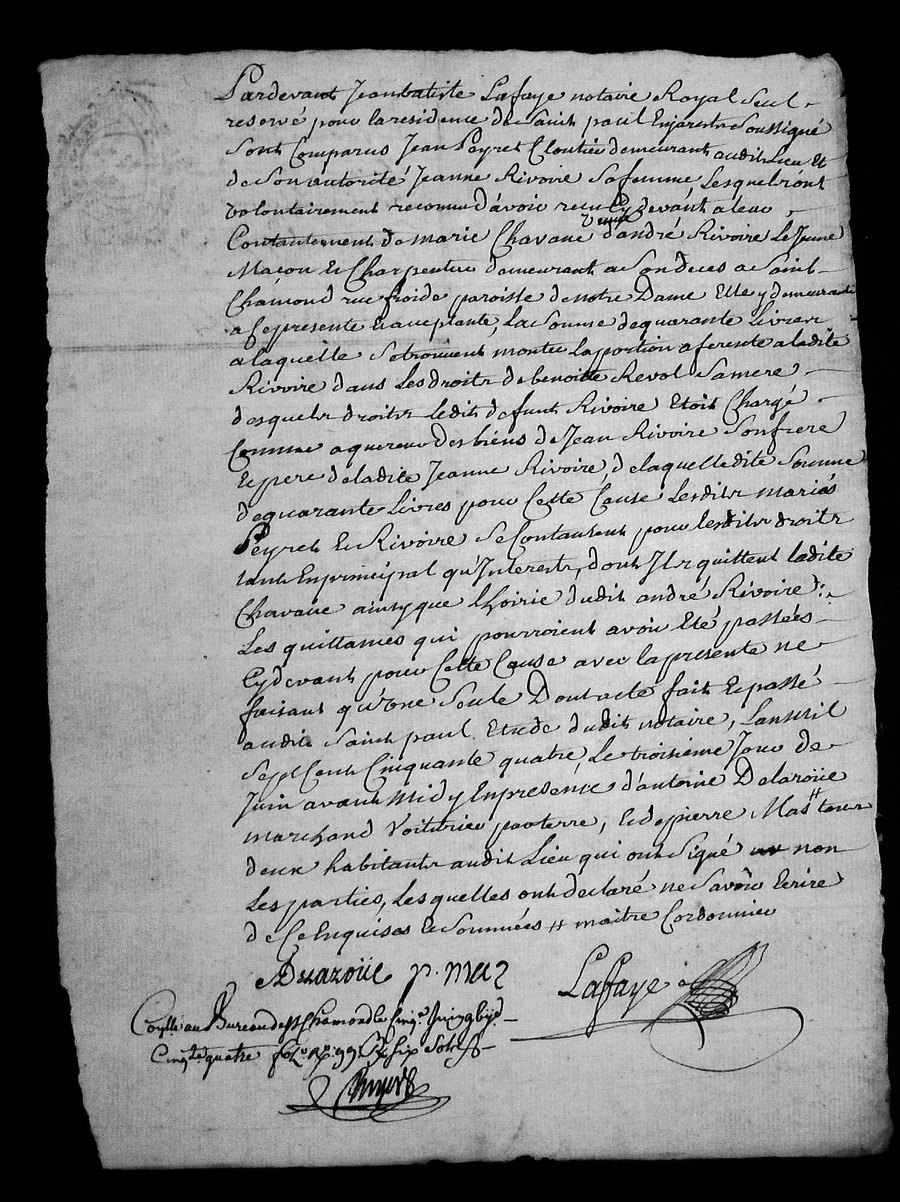 Pardevant Jeanbatiste Lafaye notaire Royal Seul
reservé pour la residence de Saint paul Enjarest Soussigné
Sont Comparus Jean Peyret Cloutier demeurant audit Lieu Et
de Son autorité Jeanne Rivoire Sa femme Lesquels ont
volontairement reconnu d'avoir receu Cy devant a leur
veuve
Contantement de marie Chavane d'andré Rivoire Le Jeune
Maçon Et Charpentier demeurant a Son deces a Saint
Chamond rue froide paroisse de notre Dame Elle y demeurante
a Ce presente Et aceptante, La Somme de quarante Livres
a laquelle Se trouvent monter La portion aferente a ladite
Rivoire dans Les droits de benoitte Revol Sa mere
desquels droits Ledit defunt Rivoire Etoit Chargé
Comme aquereur des biens de Jean Rivoire Son frere
Et pere de ladite Jeanne Rivoire, de laquelle dite Somme
de quarante Livres pour Cette Cause Lesdits mariés
Peyret Et Rivoire Se Contantent pour lesdits droits
tant En principal qu'Interests, dont Ils quittent ladite
Chavane ainsy que Lhoirie dudit andré Rivoire :
Les quittances qui pourroient avoir Eté passées
Cy devant pour Cette Cause avec la presente ne
faisant qu'une Seule Dont acte fait Et passé
audit Saint paul Etude dudit notaire, Lan Mil
Sept Cent Cinquante quatre Le troisième Jour de
Juin avant Midy En presence d'antoine Delaroüe
marchand Voiturier par terre, Et de pierre Mas # tous
deux habitants audit Lieu qui ont Signé non
Les parties, Lesquelles ont declaré ne Savoir Ecrire
de Ce Enquises Et Sommées # maitre Cordonnier
p. mas
Lafaye
au Bureau de St Chamond le Cinq Juin
Cinq te quatre six Sols